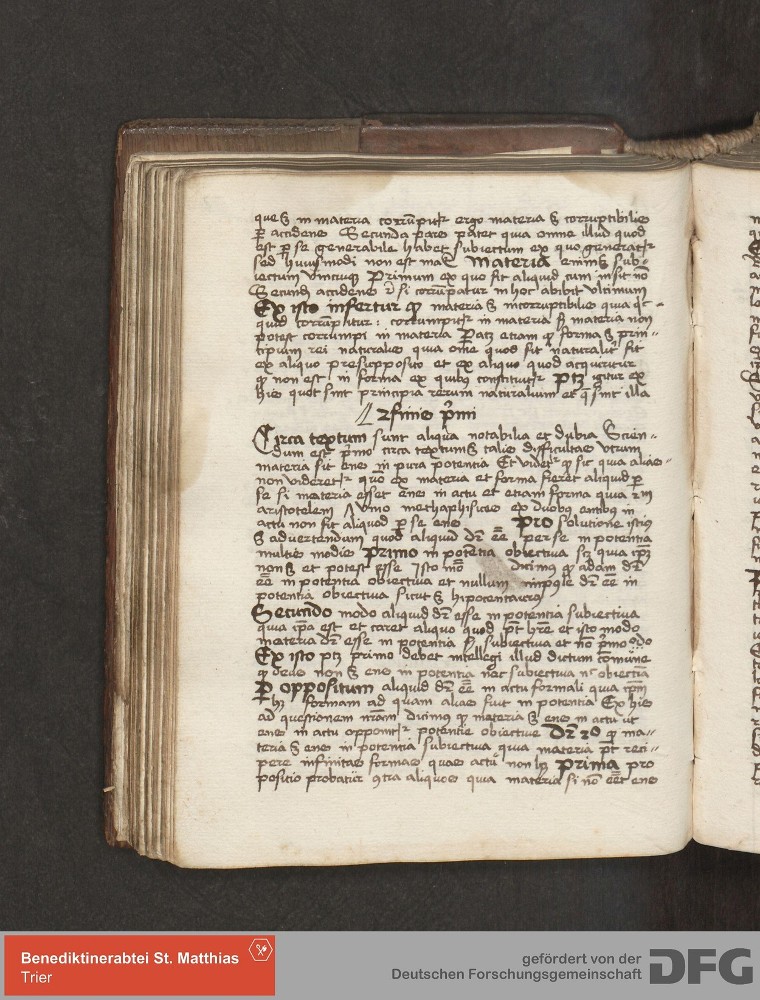 que est in materia corrũpitur ergo materia est corruptibilis
per accidens Secunda pars patet quia omne illud quod
est per se generabile habet subiectum ex quo generatur
sed huiusmodi non est mã Materia enim est sub-
iectum uniuscuiusque Primum ex quo fit aliquid cum insit nõ
Secundum accidens et si corrũpatur in hoc abibit ultimum
Ex isto infertur quod materia est incorruptibilis quia quic-
quid corrũpitur : corrumpitur in materia sed materia non
potest corrumpi in materia Patz etiam quod forma est prin-
cipium rei naturalis quia õme quod fit naturaliter fit
ex aliquo presupposito et ex aliquo quod acquiritur
quod non est nisi forma ex quibus constituitur ptz igitur ex
his quot sint principia rerum naturalium et que sint illa
primi
Circa textum sunt aliqua notabilia et dubia Secun-
dum est primo circa textum est talis difficultas Utrum
materia sit ens in pura potentia Et videtur quod sic quia alias
non videretur quõ ex materia et forma fieret aliquid per
se si materia esset ens in actu et etiam forma quia
aristotelem methaphisice ex duobus entibus in
actu non fit aliquod per se ens Pro solutione istius
est advertendum quod aliquid dr̃ eẽ per se in potentia
multis modis Primo in potentia obiectiva scz quia ipz
non est et potest esse Isto mõ dicimus quod adam dr̃
eẽ in potentia obiectiva et nullum dr̃ eẽ in
potentia obiectiva sicut est
Secundo modo aliquid dr̃ esse in potentia subiectiva
quia ipã est et caret aliquo quod pt̃ hr̃e et isto modo
materia dr̃ esse in potentia subiectiva et nõ pr̃mo modo
Ex isto ptz primo debet intellegi illud dictum cõmune
quod deus non est ens in potentia nec subiectiva nec obiectia
Per oppositum aliquid dr̃ eẽ in actu formali quia ipm̃
hz formam ad quam alias fuit in potentia Ex his
ad questionem nr̃am dicimus quod materia est ens in actu ut
ens in actu opponitur potentie obiective Dr̃ 2o quod ma-
teria est ens in potentia subiectiva quia materia pt̃ reci-
pere infinitas formas quas actu non hz Prima pro
positio probatur contra aliquos quia materia si nõ eẽt ens
Benediktinerabtei St. Matthias
Trier
gefördert von der
Deutschen Forschungsgemeinschaft
DFG